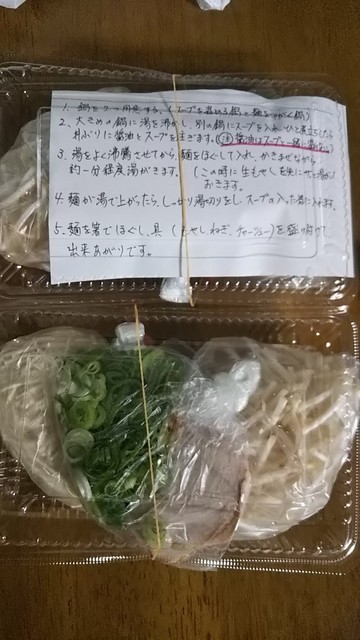 1. 鍋を2つ用意する。(スープを温める鍋と麺をゆがく鍋)
2. 大きめの鍋に湯を沸かし、別の鍋にスープを入れ、ひと煮立ちしたら
丼ぶりに醤油とスープを注ぎます。(注 醤油はスープと一緒に
3. 湯をよく沸騰させてから、麺をほぐして入れ、かきまぜながら
約一分程度湯がきます。 (この時に生もやしを先に
おきます。
4. 麺が湯で上がったら、しっかり湯切りをし スープの入った器に入れます。
5. 麺を箸でほぐし、具 (もやし、ねぎ、チャーシュー)を盛り付けて
出来あがりです。